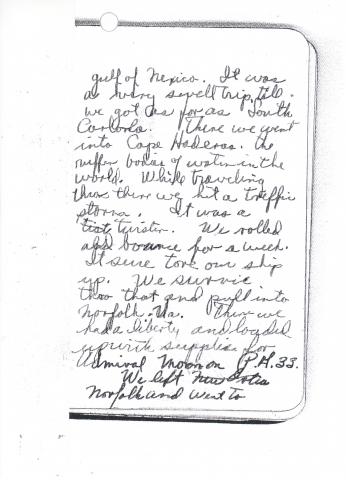 gulf of Mexico. It was
a very swell trip, till
we got as far as South
Carlorla. There we went
into Cape Haderas. the
ruffer bodies of water in the
world. While traveling
thru there we hit a treffic
storm. It was a
twister. We rolled
and bounce for a week.
It sure tore our ship
up. We survie
throo that and pull into
Norfolk. Va. There we
had a liberty and loaded
up with supplies for
Admiral Moon on P.A. 33.
We left
Norfolk and went to